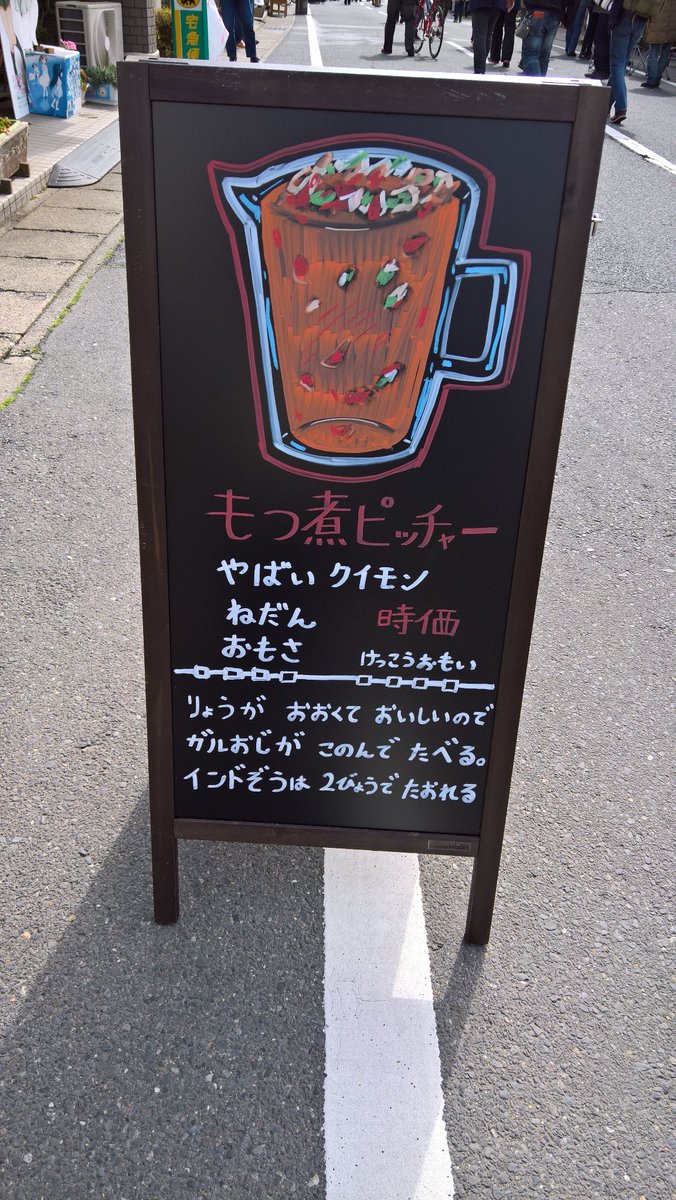 宅急便
もつ煮ピッチャー
やばい クイモン
ねだん 時価
おもさ けっこうおもい
りょうが おおくて おいしいので
ガルおじが このんで たべる。
インドぞうは 2びょうで たおれる